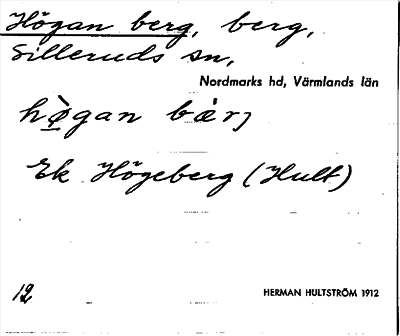 Högan berg, berg,
Silleruds sn,
Nordmarks hd, Värmlands län
hø̀gan bær̀j
Ek Högeberg (Hult)
12
HERMAN HULTSTRÖM 1912